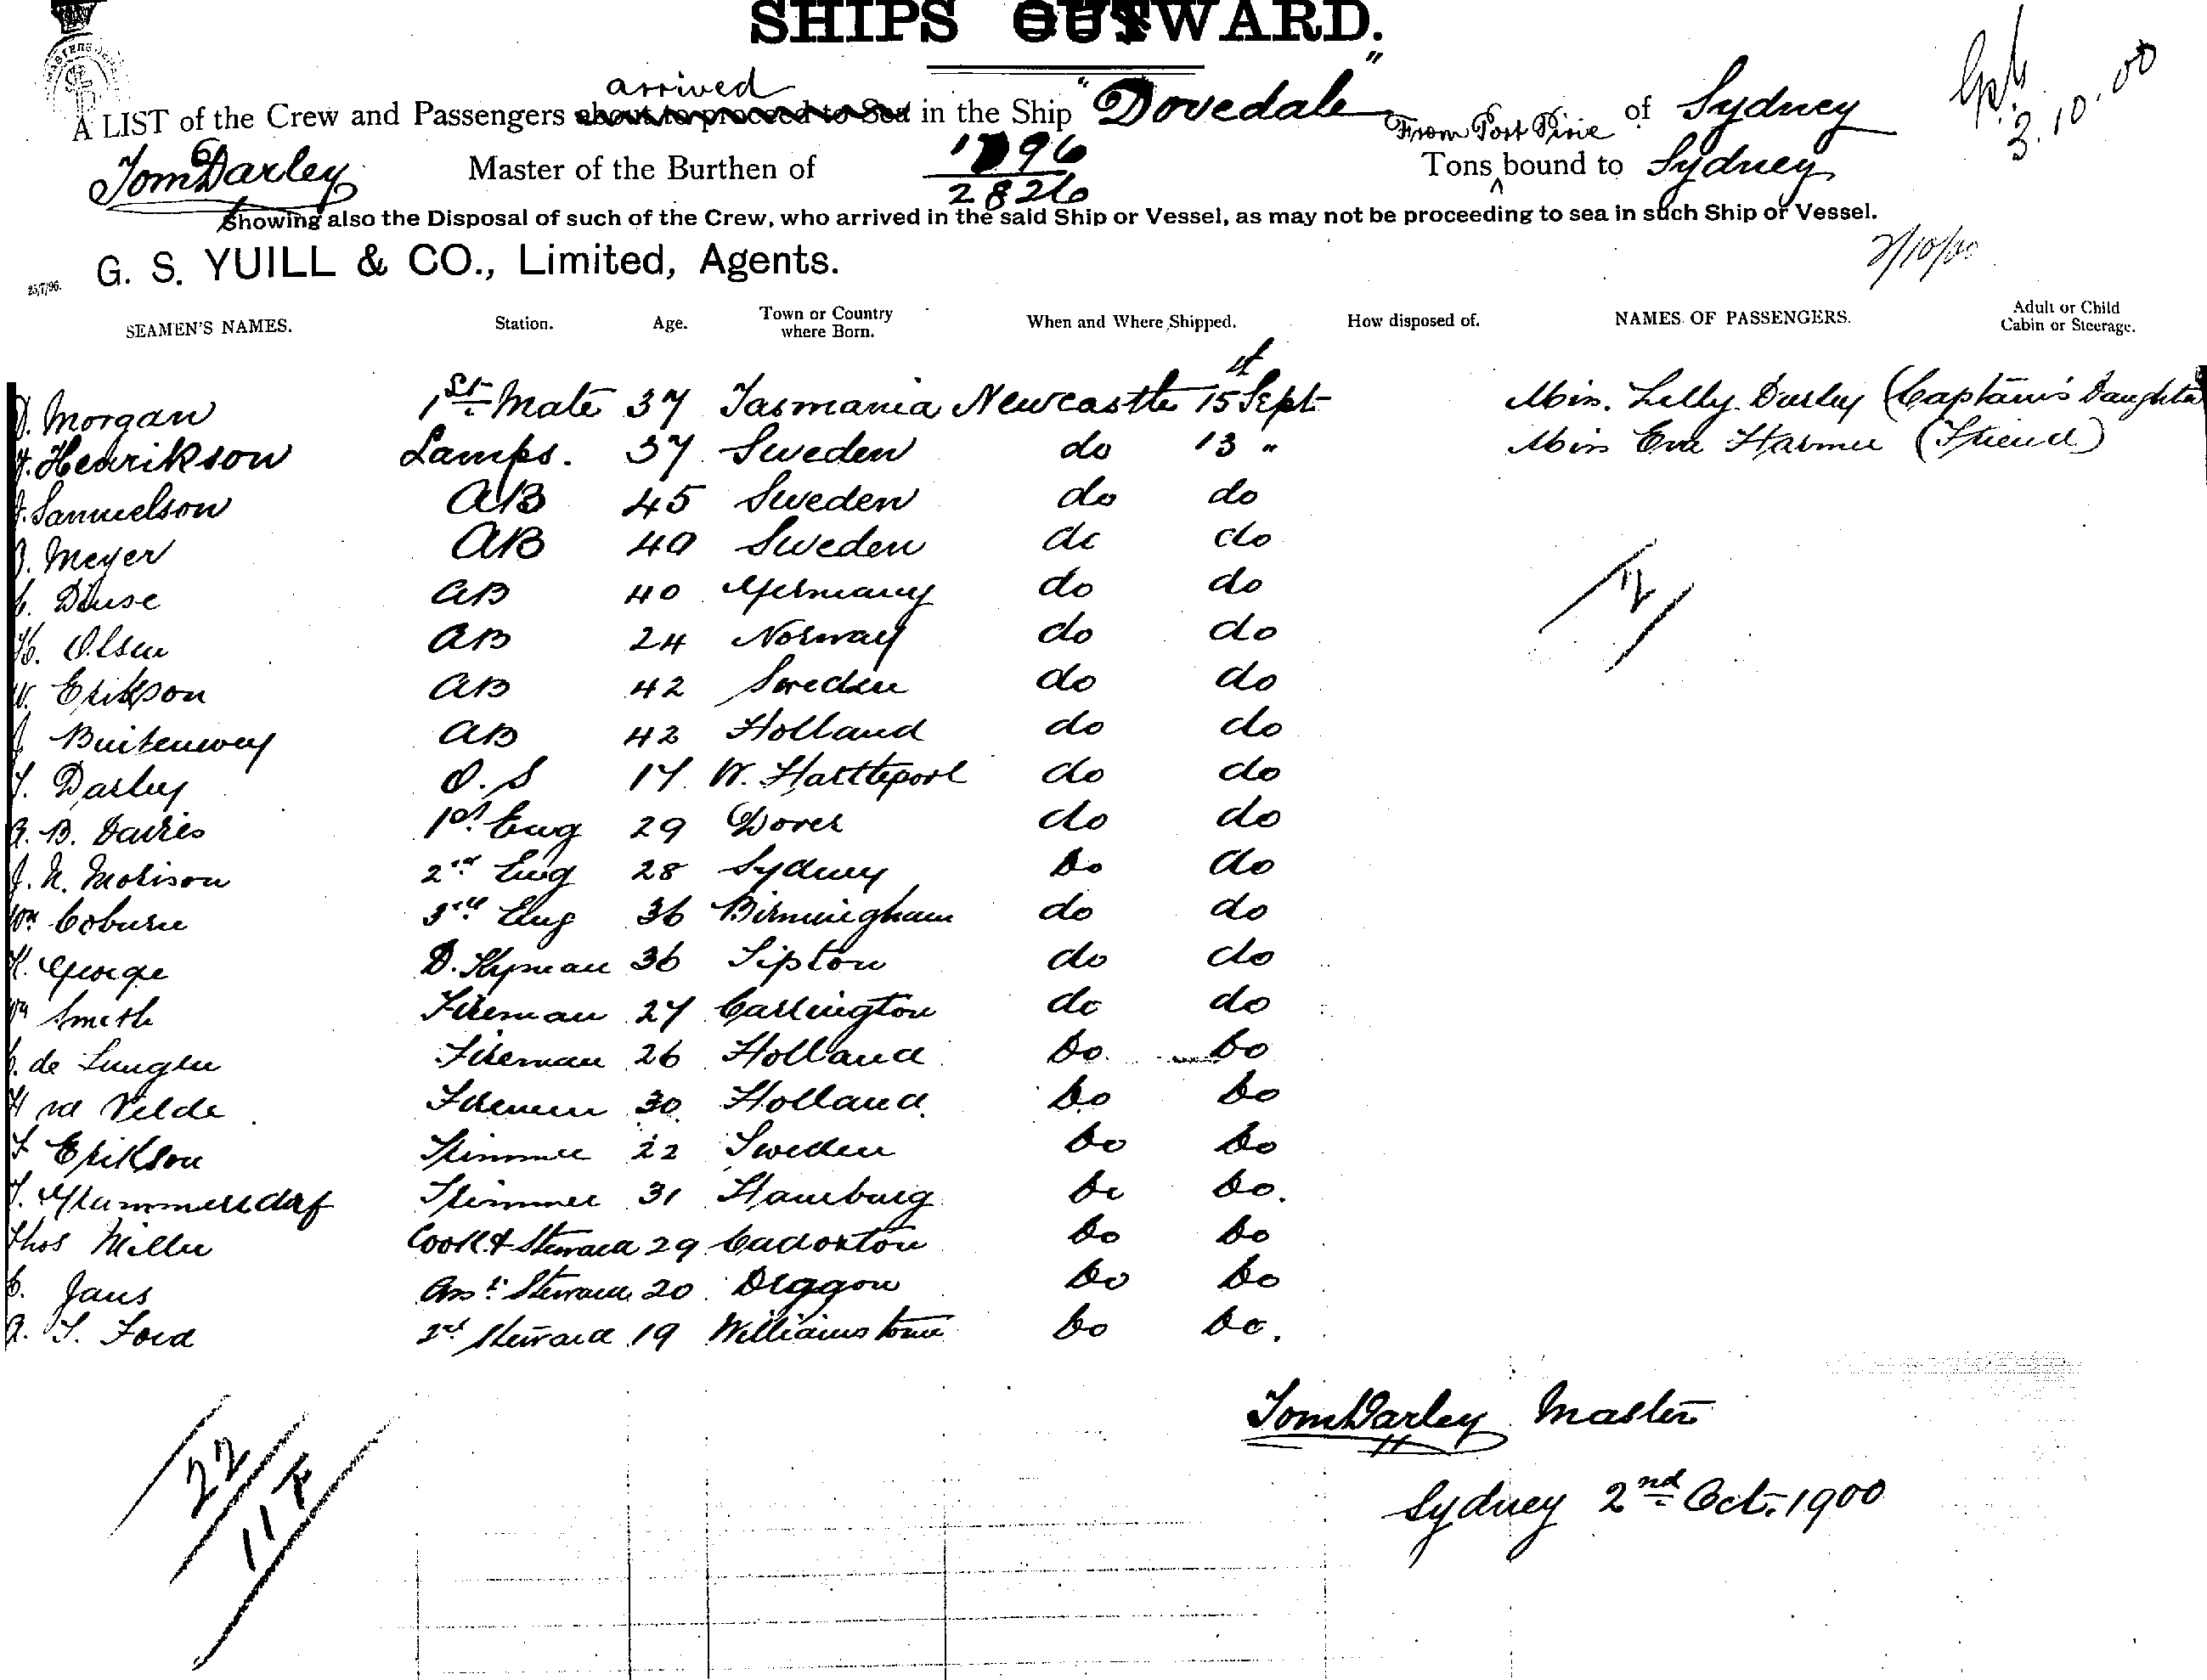 SHIPS OUTWARD.
arrived
A LIST of the Crew and Passengers about to proceed to Sea in the Ship "Dovedale" From Port Pirie of Sydney
3.10.00
Tom Darley Master of the Burthen of 1896 Tons bound to Sydney
2826
Showing also the Disposal of such of the Crew, who arrived in the said Ship or Vessel, as may not be proceeding to sea in such Ship or Vessel.
2/10/00
G. S. YUILL & CO., Limited, Agents.
25/7/96.
SEAMEN'S NAMES. Station. Age. Town or Country where Born. When and Where Shipped. How disposed of. NAMES OF PASSENGERS. Adult or Child Cabin or Steerage.
D. Morgan 1st Mate 37 Tasmania Newcastle 15 Sept Miss. Lilly Darley (Captain's Daughter
Henrikson Lamps. 37 Sweden do 13 " Miss Eva Harmer (Friend)
J. Samuelson AB 45 Sweden do do
Meyer AB 40 Sweden do do
AB 40 Germany do do
H. Olsen AB 24 Norway do do
W. Erikson AB 42 Sweden do do
J Buitenweg AB 42 Holland do do
T. Darley O.S 17 W. Hartlepool do do
A. B. Davies 1st Eng 29 Dover do do
J. N. Morison 2nd Eng 28 Sydney do do
Wm Coburn 3rd Eng 36 Birmingham do do
H. George D. Kyman 36 Tipton do do
Wm Smith Fireman 27 Carrington do do
C. de Fireman 26 Holland do do
H vd Velde Fireman 30 Holland do do
F Erikson Trimmer 22 Sweden do do
Trimmer 31 Hamburg do do.
Thos Miller Cook & Steward 29 Cadoxton do do
C. Jans Asst Steward 20 do do
A. T. Ford 2nd Steward 19 Williamstown do do.
/2/
Tom Darley Master
Sydney 2nd Oct. 1900
22
11 F